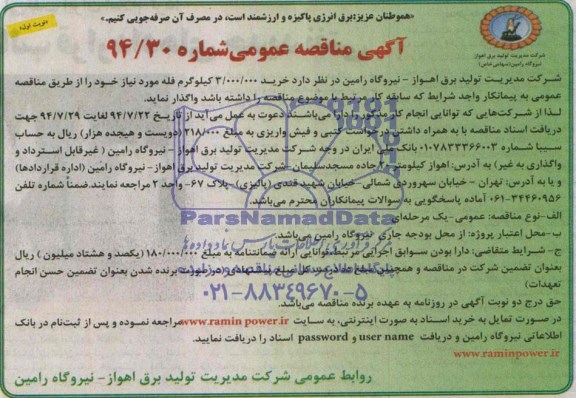 «هموطنان عزیز:برق انرژی پاکیزه و ارزشمند است، در مصرف آن صرفه‌جویی کنیم.»
«نوبت اول»
آگهی مناقصه عمومی‌شماره ۹۴/۳۰
شرکت مدیریت تولید برق اهواز
نیروگاه رامین(سهامی خاص)
شرکت مدیریت تولید برق اهواز - نیروگاه رامین در نظر دارد خرید ۳/۰۰۰/۰۰۰ کیلوگرم فله مورد نیاز خود را از طریق مناقصه
عمومی به پیمانکار واجد شرایط که سابقه کار مرتبط با موضوع مناقصه را داشته باشد واگذار نماید.
لذا از شرکت‌هایی که توانایی انجام کار مذکور را دارا می‌باشند دعوت به عمل می‌آید از تاریخ ۹۴/۷/۲۲ لغایت ۹۴/۷/۲۹ جهت
دریافت اسناد مناقصه با به همراه داشتن درخواست کتبی و فیش واریزی به مبلغ ۲۱۸/۰۰۰ (دویست و هیجده هزار) ریال به حساب
سیبا شماره ۰۱۰۷۸۳۳۳۶۶۰۰۳ بانک ملی ایران در وجه شرکت مدیریت تولید برق اهواز - نیروگاه رامین ( غیرقابل استرداد و
واگذاری به غیر) به آدرس: اهواز کیلومتر ۲۰ جاده مسجدسلیمان-شرکت مدیریت تولید برق اهواز- نیروگاه رامین (اداره قراردادها)
و یا به آدرس: تهران - خیابان سهروردی شمالی -خیابان شهید قندی (پالیزی) پلاک ۶۷- واحد ۲ مراجعه نمایند.ضمناً شماره تلفن
۰۶۱-۳۴۴۶۰۹۵۶ آماده پاسخگویی به سوالات پیمانکاران محترم می‌باشد.
الف-نوع مناقصه: عمومی- یک مرحله‌ای
ب-محل اعتبار پروژه: از محل بودجه جاری نیروگاه رامین می‌باشد.
ج- شرایط متقاضی: دارا بودن سوابق اجرایی مرتبط-توانایی ارائه ضمانتنامه به مبلغ ۱۸۰/۰۰۰/۰۰۰ (یکصد و هشتاد میلیون ) ریال
بعنوان تضمین شرکت در مناقصه و همچنین مبلغ در صورت برنده شدن بعنوان تضمین حسن انجام
تعهدات)
حق درج دو نوبت آگهی در روزنامه به عهده برنده مناقصه می‌باشد.
در صورت تمایل به خرید اسناد به صورت اینترنتی، به سایت www.ramin power.ir مراجعه نموده و پس از ثبت‌نام در بانک
اطلاعاتی نیروگاه رامین و دریافت user name و password اسناد را دریافت نمایید.
www.raminpower.ir
روابط عمومی شرکت مدیریت تولید برق اهواز- نیروگاه رامین
ParsNamadData
۰۲۱-۸۸۳۴۹۶۷۰-۵